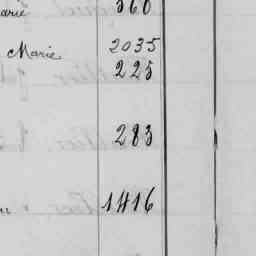 arie 360
Marie 2035
225
283
1416